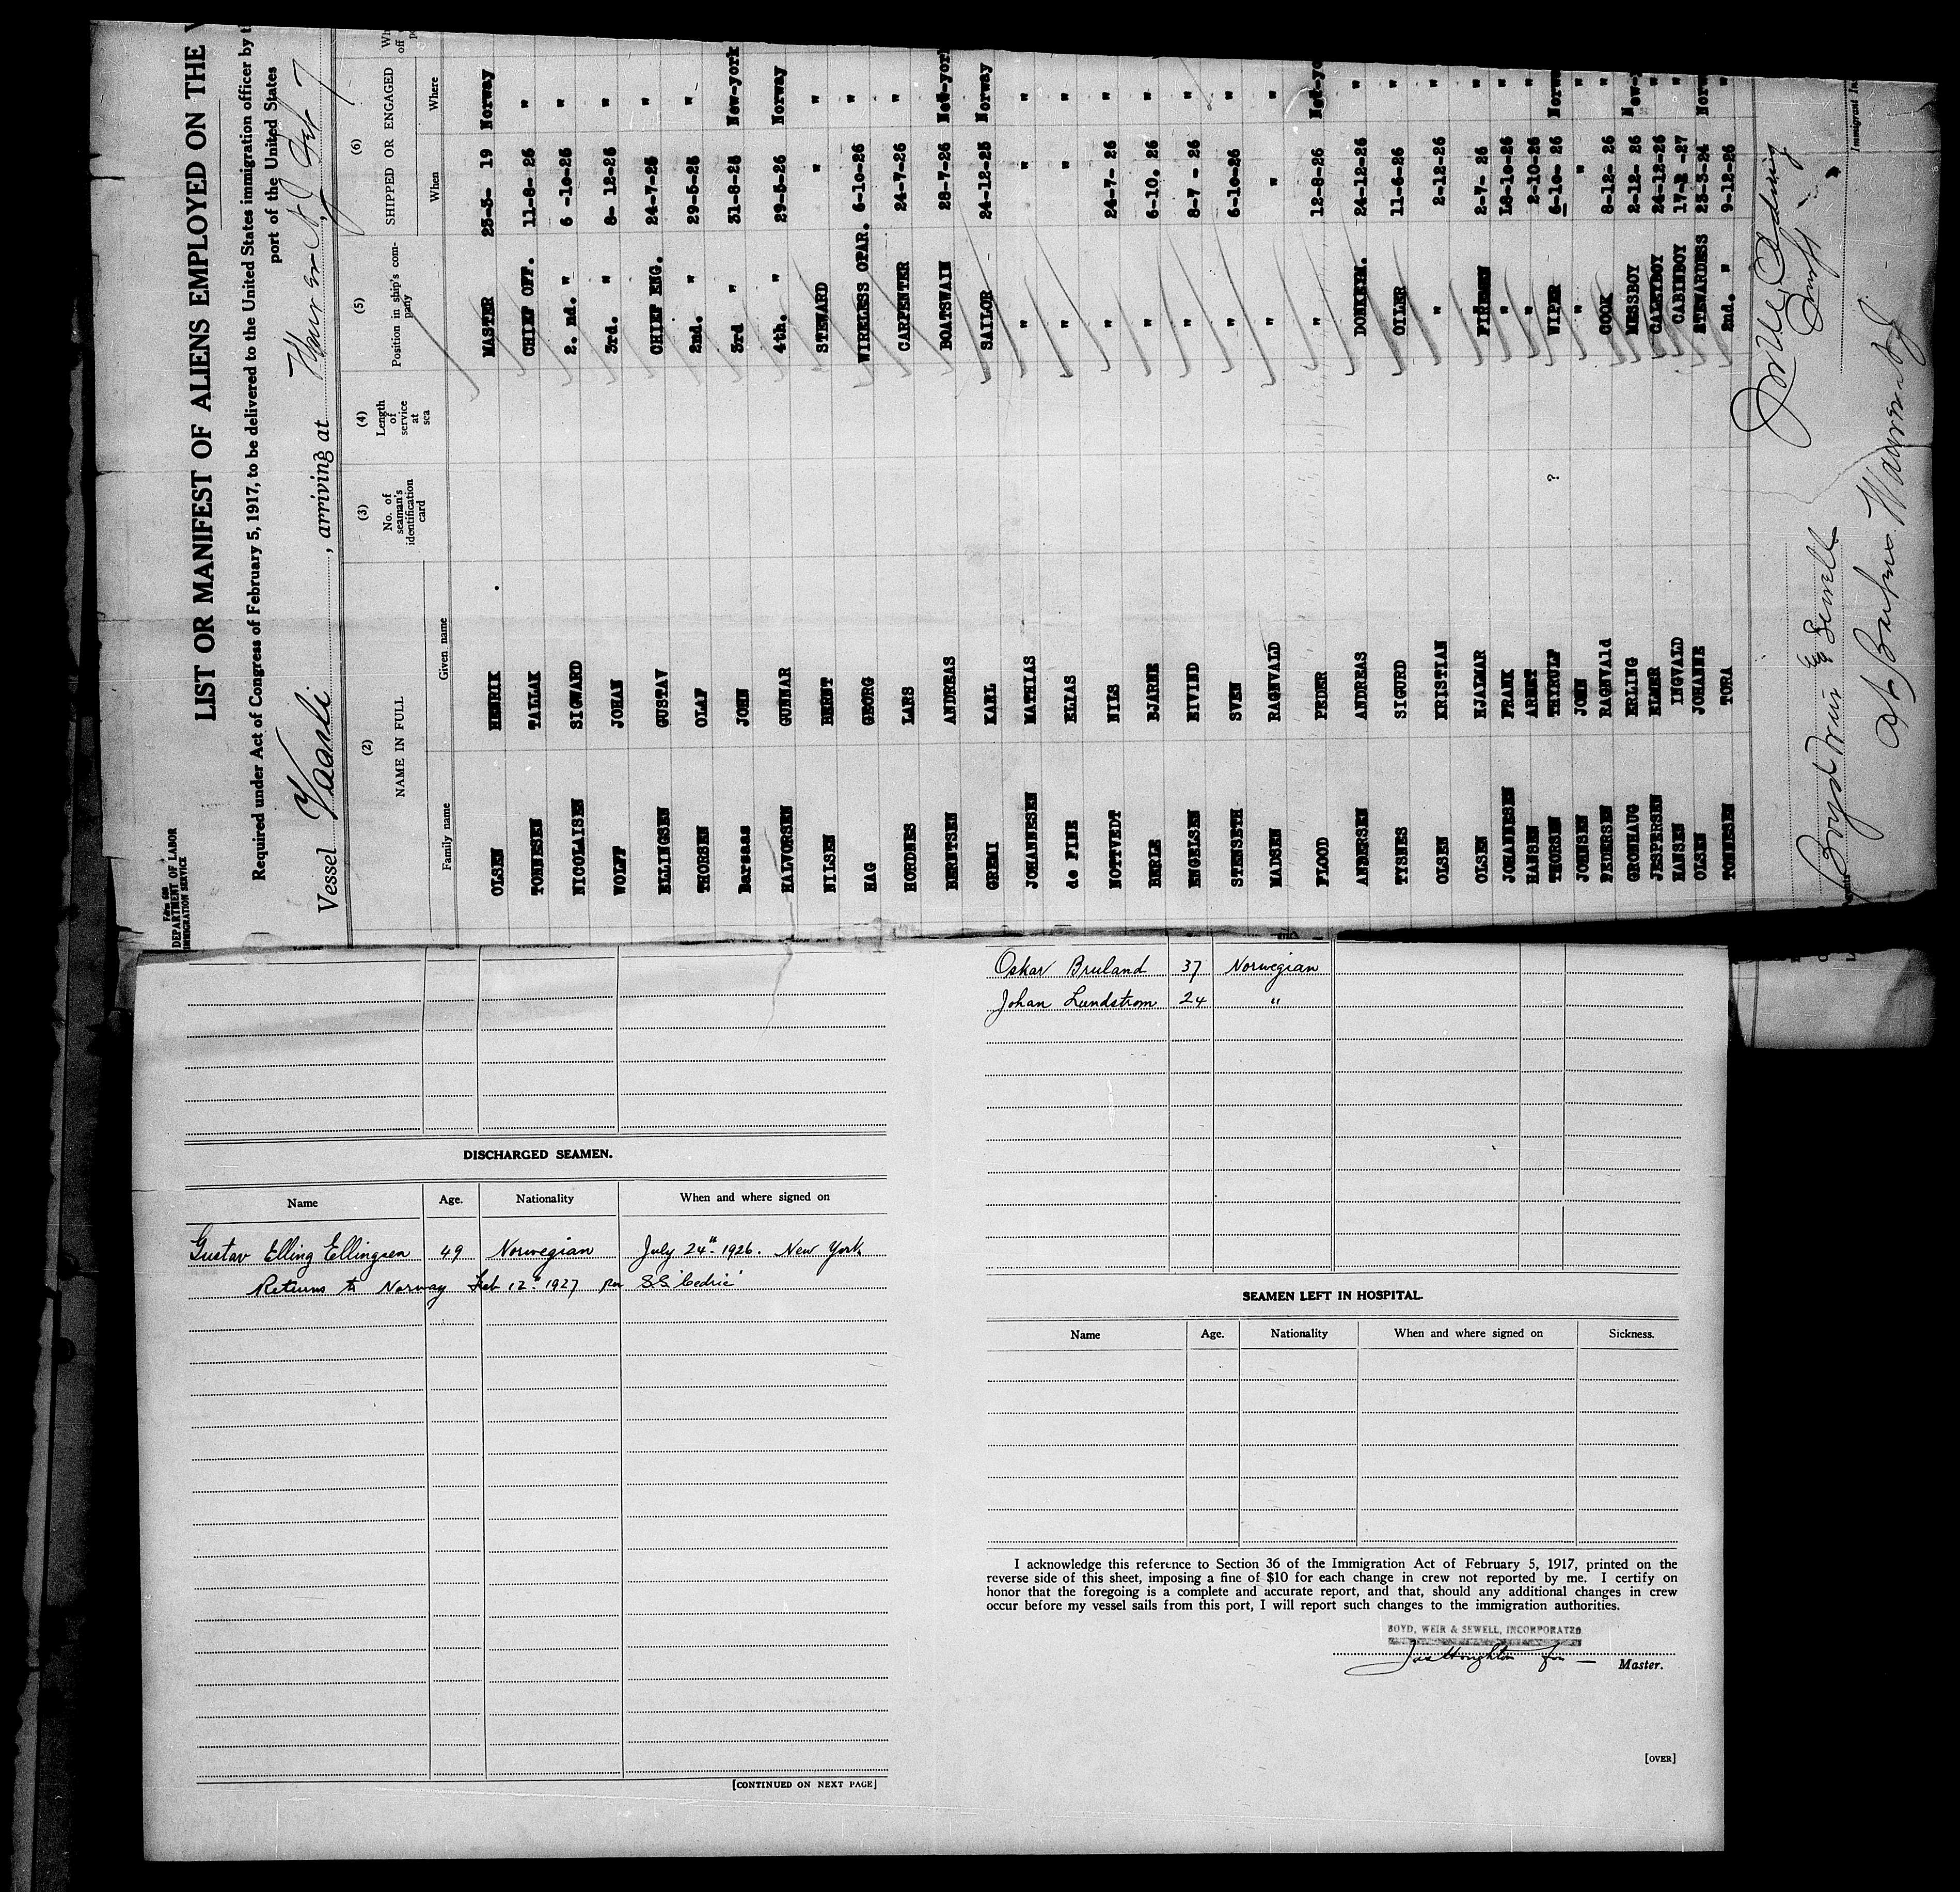 Form 680
DEPARTMENT OF LABOR
IMMIGRATION SERVICE
LIST OR MANIFEST OF ALIENS EMPLOYED ON THE
Required under Act of Congress of February 5, 1917, to be delivered to the United States immigration officer by
port of the United States
Vessel Vaarli, arriving at Warners N.J. Feb 7
(2) (3) (4) (5) (6)
NAME IN FULL No. of seaman's identification card Length of service at sea Position in ship's company SHIPPED OR ENGAGED
Family name Given name When Where
OLSEN HENRIK MASTER 23-5- 19 Norway
TONNESEN TALLAK CHIEF OFF. 11-8-26 "
NICOLAISEN SIGWARD 2. nd. " 6 -10-26 "
WOLFF JOHAN 3rd. " 8- 12-26 "
ELLINGSEN GUSTAV CHIEF ENG. 24-7-26 "
THORSEN OLAF 2nd. " 29-5-26 "
Barsaas JOHN 3rd " 31-8-26 New-york
HALVORSEN GUNNAR 4th. " 29-5-26 Norway
NILSEN BERNT STEWARD " "
HAG GEORG WIRELESS OPAR. 6-10-26 "
HORDNES LARS CARPENTER 24-7-26 "
BERNTSEN ANDREAS BOATSWAIN 28-7-26 New-york
GREMI KARL SAILOR 24-12-25 Norway
JOHANNESEN MATHIAS " " "
de FINE ELIAS " " "
NOTTVEDT NILS " 24-7- 26 "
BERLE BJARNE " 6-10. 26 "
ENGELSEN EIVIND " 8-7 - 26 "
STENSETH SVEN " 6-10-26 "
MADSEN RAGNVALD " " "
FLOOD PEDER " 12-8-26 New-yo
ANDERSEN ANDREAS DONKEYM. 24-12-26 "
TYSNES SIGURD OILER 11-6-26 "
OLSEN KRISTIAN " 2-12-26 "
OLSEN HJALMAR FIREMEN 2-7- 26 "
JOHANNESEN FRANK " 18-10-26 "
HANSEN ARENT " 2-10-26 "
THORSEN THYRULF ? WIPER 6-10- 26 Norwa
JOHNSEN JOHN " " "
PEDERSEN RAGNVald COOK 8-12- 26 "
GRONHAUG ERLING MESSBOY 2-12- 26 New-y
JESPERSEN ELMER GALEYBOY 24-12-26 "
HANSEN INGVALD CABINBOY 17-2 -27 "
OLSEN JOHANNE STEWARDESS 23-3-24 Norw
TONNESEN TORA 2nd. " 9-12-26 "
Boyd Weir & Sewell
Immigrant In
Oskar Bruland 37 Norwegian
Johan Lundstrom 24 "
DISCHARGED SEAMEN.
Name Age. Nationality When and where signed on
Gustav Elling Ellingsen 49 Norwegian July 24th. 1926. New York
Returns to Norway Feb 12th 1927 per S.S. "Cedric"
[CONTINUED ON NEXT PAGE]
SEAMEN LEFT IN HOSPITAL.
Name Age. Nationality When and where signed on Sickness.
I acknowledge this reference to Section 36 of the Immigration Act of February 5, 1917, printed on the
reverse side of this sheet, imposing a fine of $10 for each change in crew not reported by me. I certify on
honor that the foregoing is a complete and accurate report, and that, should any additional changes in crew
occur before my vessel sails from this port, I will report such changes to the immigration authorities.
BOYD, WEIR & SEWELL, INCORPORATED
Jas Houghton for — Master.
[OVER]